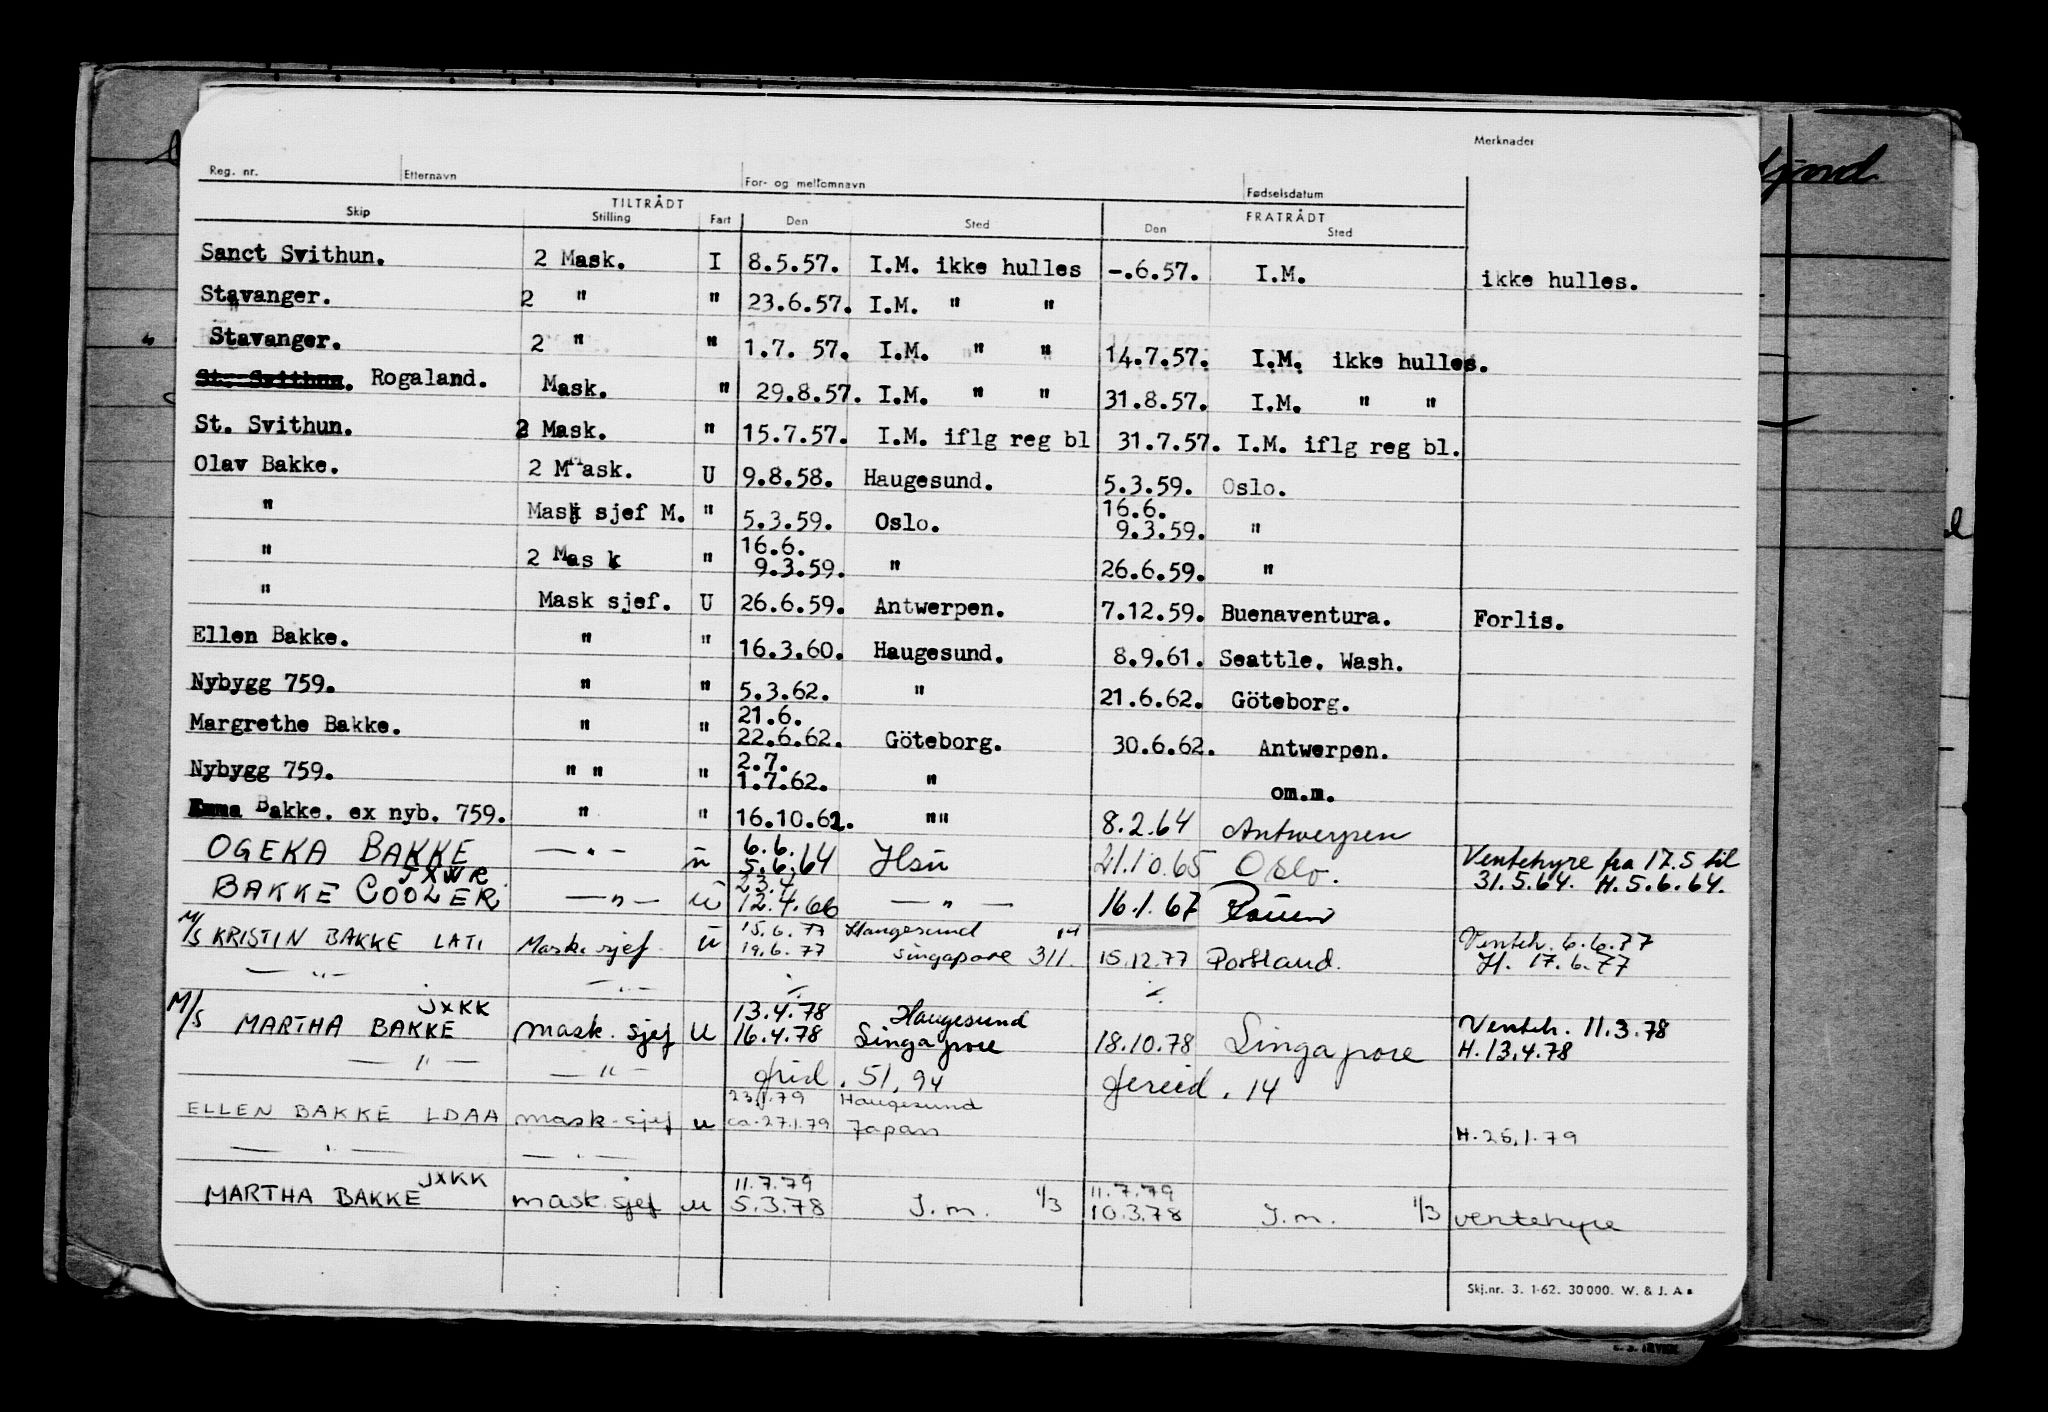 Merknader
Reg. nr. Etternavn For- og mellomnavn Fødselsdatum
TILTRÅDT FRATRÅDT
Skip Stilling Fart Den Sted Den Sted
Sanct Svithun. 2 Mask. I 8.5.57. I.M. ikke hulles -.6.57. I.M. ikke hulles.
Stavanger. 2 " " 23.6.57. I.M. " "
Stavanger. 2 " " 1.7. 57. I.M. " " 14.7.57. I.M. ikke hulles.
St. Svithun. Rogaland. Mask. " 29.8.57. I.M. " " 31.8.57. I.M. " "
St. Svithun. 2 Mask. " 15.7.57. I.M. iflg reg bl 31.7.57. I.M. iflg reg bl.
Olav Bakke. 2 Mask. U 9.8.58. Haugesund. 5.3.59. Oslo.
" Mask sjef M. " 5.3.59. Oslo. 16.6. 9.3.59. "
" 2 Mask " 16.6. 9.3.59. " 26.6.59. "
" Mask sjef. U 26.6.59. Antwerpen. 7.12.59. Buenaventura. Forlis.
Ellen Bakke. " " 16.3.60. Haugesund. 8.9.61. Seattle. Wash.
Nybygg 759. " " 5.3.62. " 21.6.62. Göteborg.
Margrethe Bakke. " " 21.6. 22.6.62. Göteborg. 30.6.62. Antwerpen.
Nybygg 759. " " " 2.7. 1.7.62. " om.m.
Emma Bakke. ex nyb. 759. " " 16.10.62. "" 8.2.64 Antwerpen
OGEKA BAKKE — " — u 6.6. 5.6.64 Hsu 21.10.65 Oslo. Ventehyre fra 17.5 til 31.5.64. H. 5.6.64.
JXWR.
BAKKE COOLER — " — u 23.4 12.4.66 — " — 16.1.67
M/S KRISTIN BAKKE LATI Mask. sjef u 15.6.77 Haugesund 14
19.6.77 Singapore 311. 15.12.77 Portland. Venteh. 6.6.77
— " — H. 17.6.77
— " —
JXKK 13.4.78 Haugesund
M/S MARTHA BAKKE mask. sjef u 16.4.78 Singapore 18.10.78 Singapore Venteh. 11.3.78
H. 13.4.78
— " — — " — . 51, 94 . 14
23.1.79 Haugesund
ELLEN BAKKE LDAA mask. sjef u ca. 27.1.79 Japan H. 25.1.79
— " — — " —
JXKK 11.7.79 11.7.79
MARTHA BAKKE mask. sjef u 5.3.78 I.m. 1/3 10.3.78 I.m. 1/3 ventehyre
Skj.nr. 3. 1-62. 30 000. W. & J. A.s